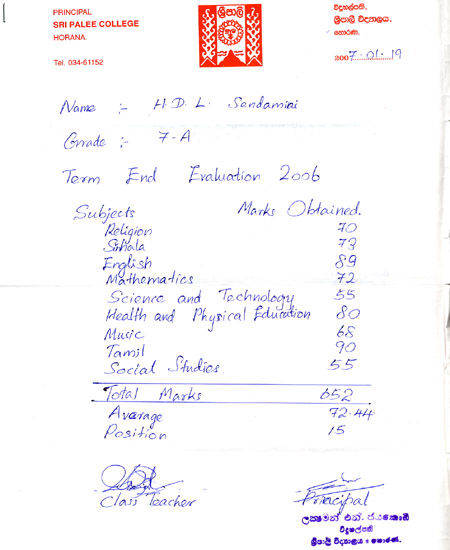 PRINCIPAL
SRI PALEE COLLEGE
HORANA.
Tel. 034-61152
ශ්‍රීපාලි
විදුහල්පති.
ශ්‍රීපාලි විද්‍යාලය.
හොරණ.
2007.01.19
Name :- H.D.L. Sandamini
Grade :- 7-A
Term End Evaluation 2006
Subjects Marks Obtained.
Religion 70
Sinhala 73
English 89
Mathematics 72
Science and Technology 55
Health and Physical Education 80
Music 68
Tamil 90
Social Studies 55
Total Marks 652
Average 72.44
Position 15
Class Teacher
Principal
ලක්ෂමන් එන්.
විදුහල්පති
ශ්‍රීපාලි විද්‍යාලය හොරණ.